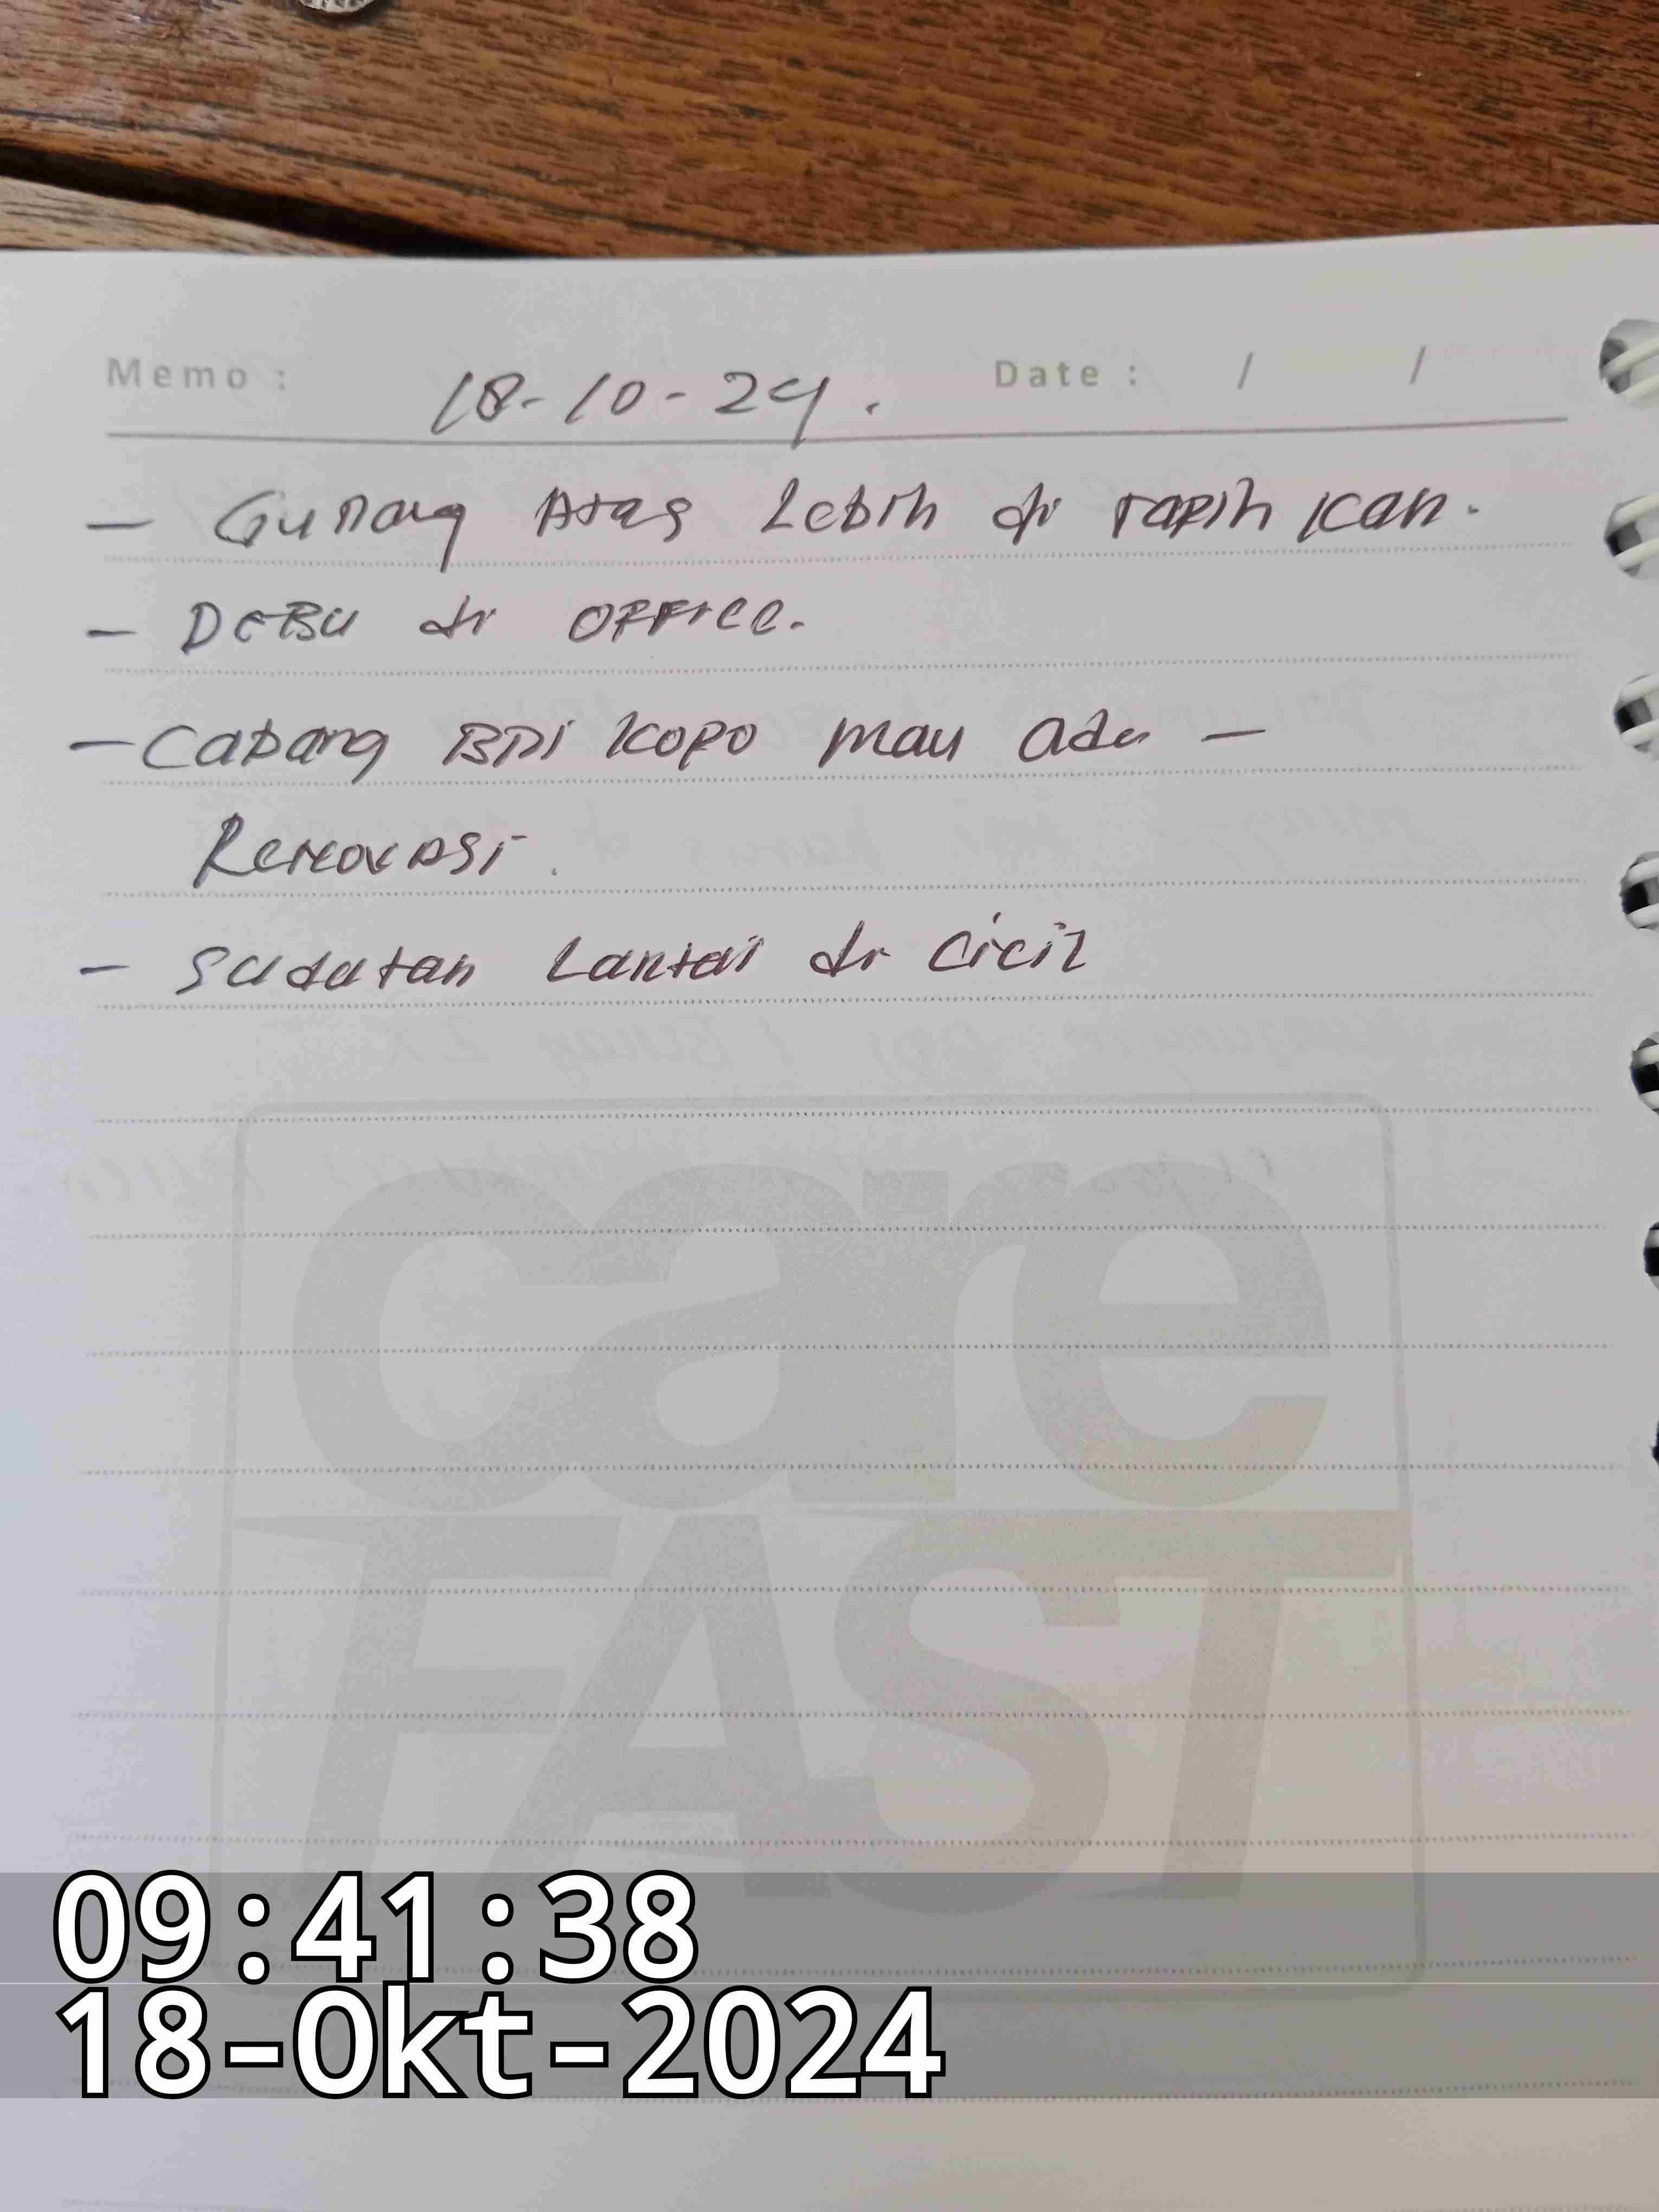 Memo : 18-10-24. Date : / /
- Gunang Atas Lebih di rapih kan.
- Debu di OFFice.
- Cabang BNI Kopo mau ada -
Renovasi.
- Sudutan Lantai di cicil
care
FAST
09:41:38
18-Okt-2024